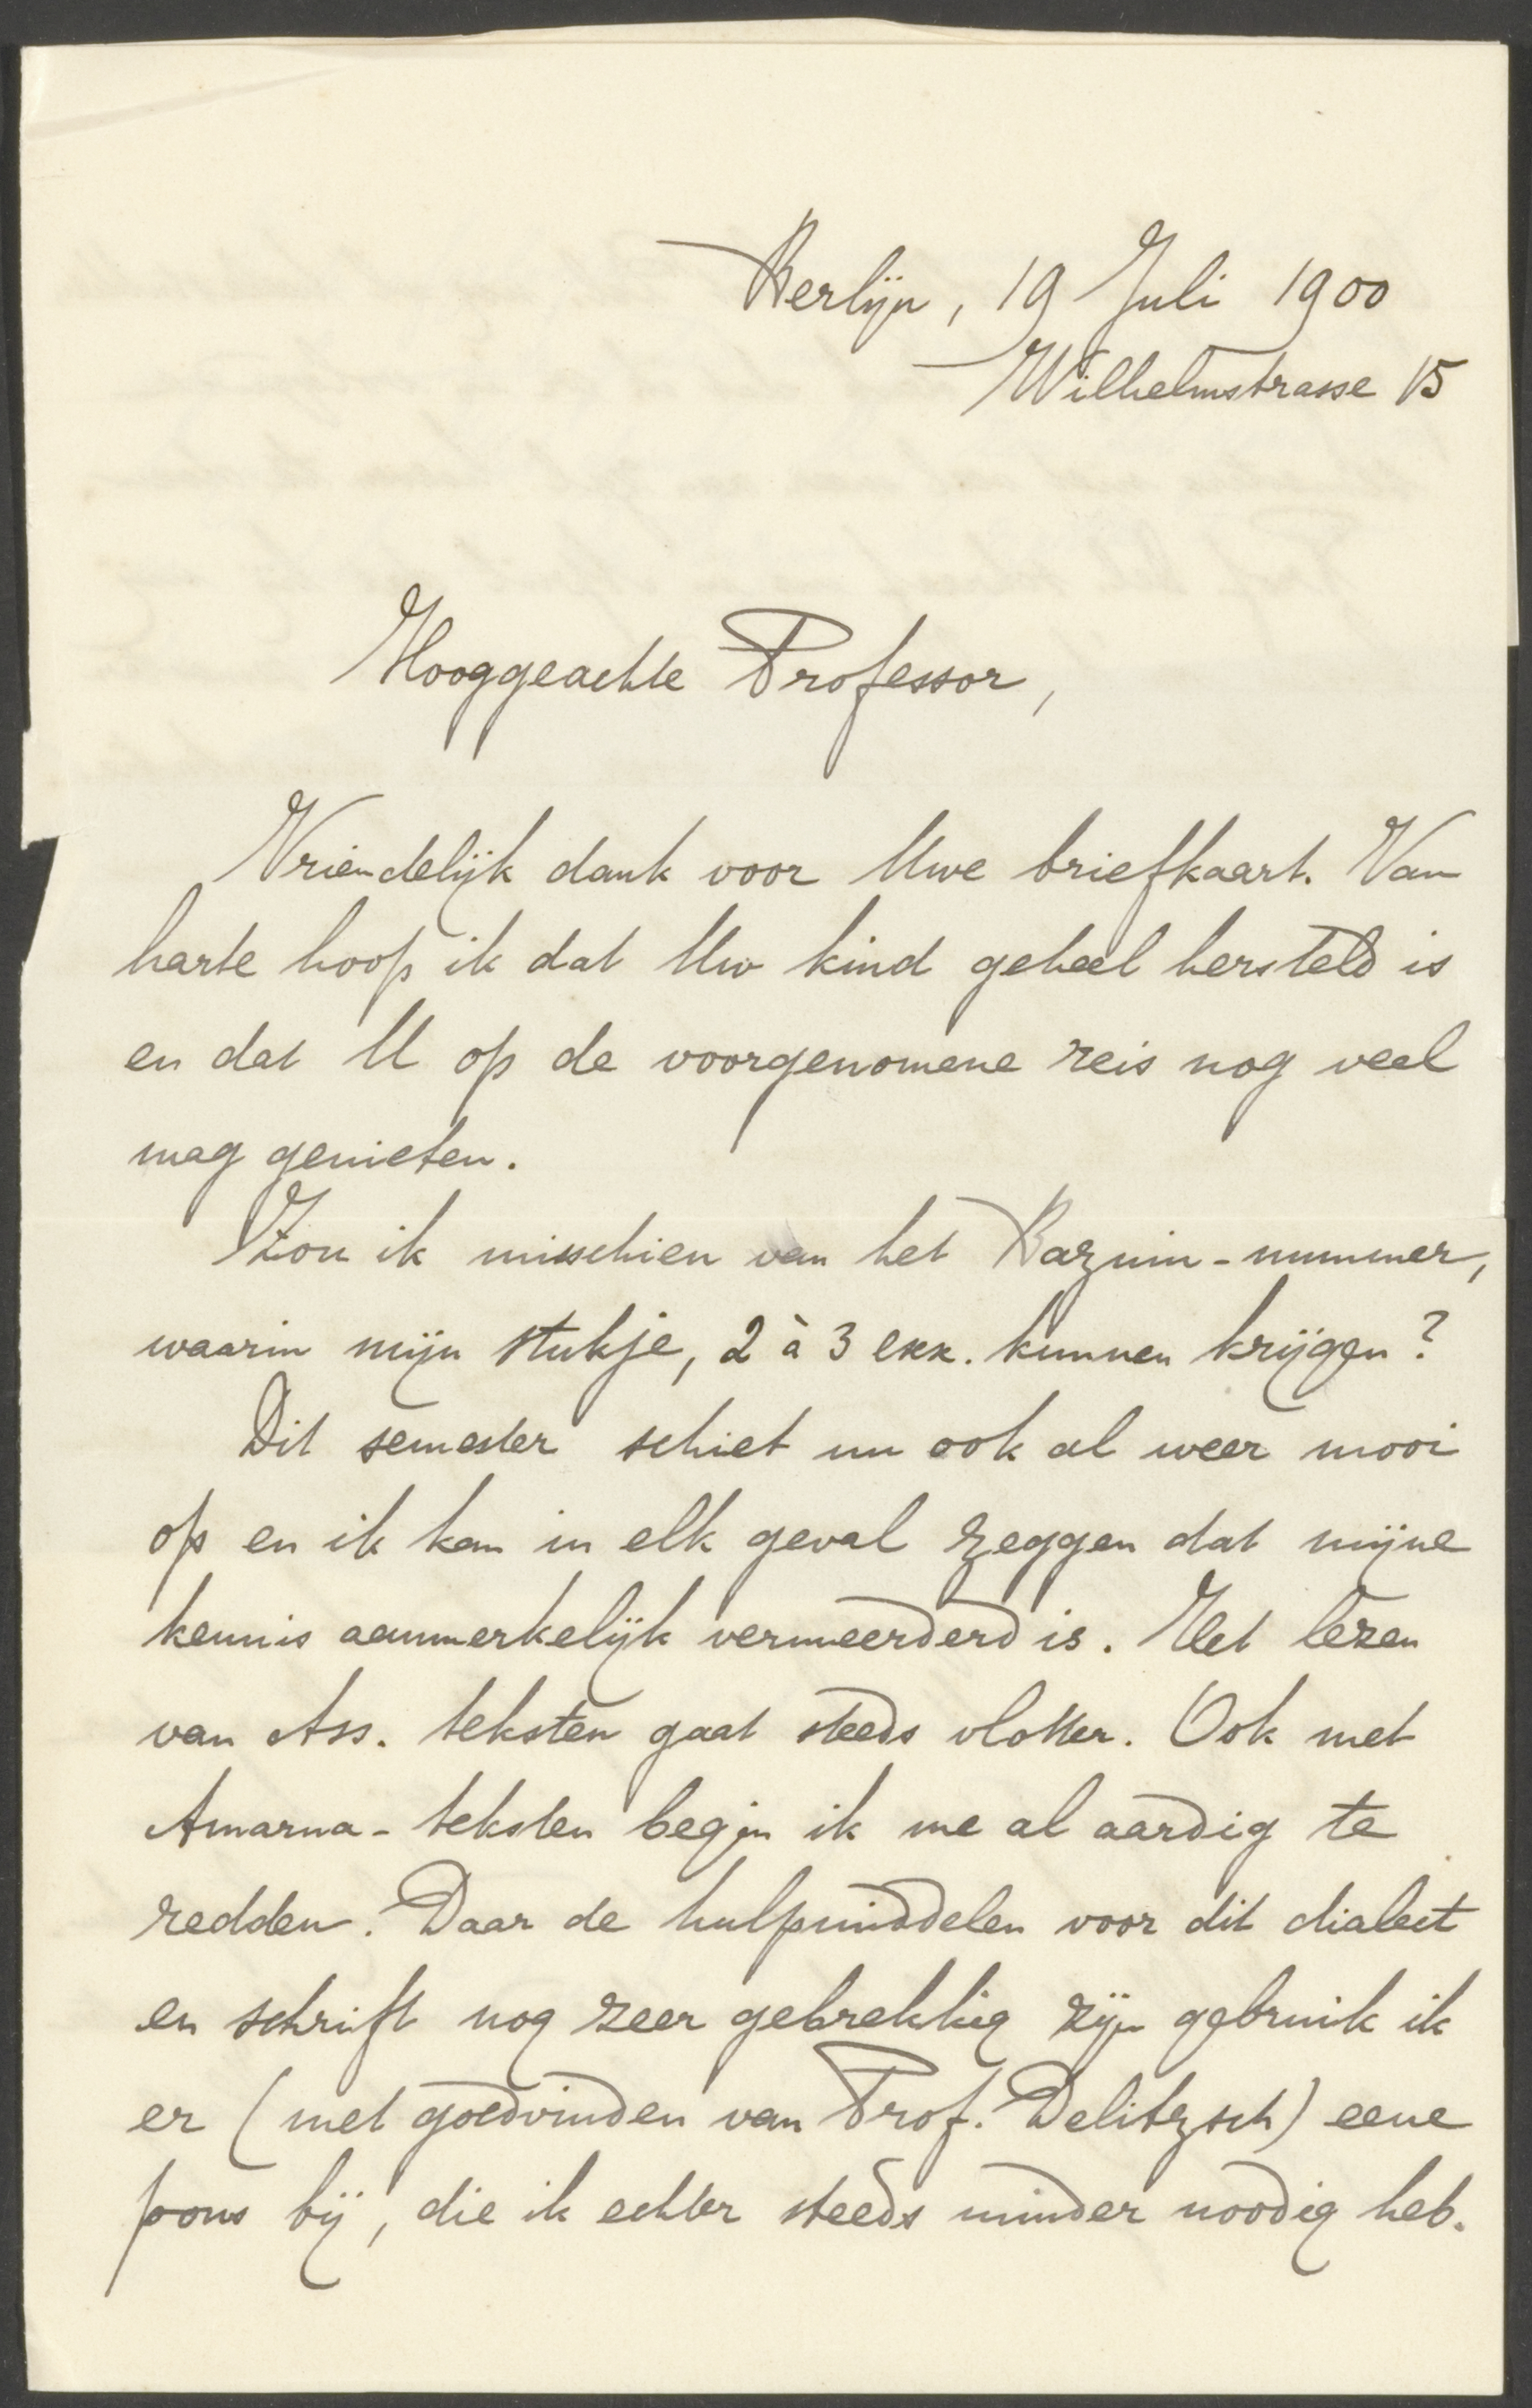 Berlijn, 19 Juli 1900
Wilhelmstrasse 15
Hooggeachte Professor,
Vriendelijk dank voor Uwe briefkaart. Van
harte hoop ik dat Uw kind geheel hersteld is
en dat U op de voorgenomene reis nog veel
mag genieten.
Zou ik misschien van het Bazuin-nummer,
waarin mijn stukje, 2 à 3 exx. kunnen krijgen?
Dit semester schiet nu ook al weer mooi
op en ik kan in elk geval zeggen dat mijne
kennis aanmerkelijk vermeerderd is. Het lezen
van Ass. teksten gaat steeds vlotter. Ook met
Amarna-teksten begin ik me al aardig te
redden. Daar de hulpmiddelen voor dit dialect
en schrift nog zeer gebrekkig zijn gebruik ik
er (met goedvinden van Prof. Delitzsch) eene
pons bij, die ik echter steeds minder noodig heb.